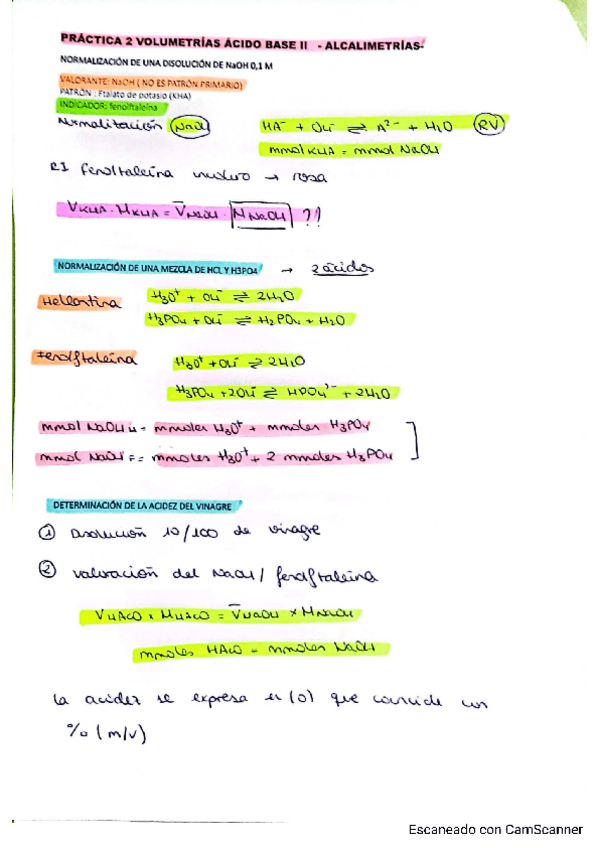 PRÁCTICA 2 VOLUMETRÍAS ÁCIDO BASE II - ALCALIMETRÍAS-
NORMALIZACIÓN DE UNA DISOLUCIÓN DE NaOH 0,1 M
VALORANTE: NaOH ( NO ES PATRÓN PRIMARIO)
PATRÓN : Ftalato de potasio (KHA)
INDICADOR: fenolftaleína
Normalización NaOH
HA⁻ + OH⁻ ⇌ A²⁻ + H₂O (RV)
mmol KHA = mmol NaOH
RI fenolftaleína incoloro → rosa
VKHA · MKHA = V̄NaOH · MNaOH ?!
NORMALIZACIÓN DE UNA MEZCLA DE HCL Y H3PO4 → 2 ácidos
Heliantina
H₃O⁺ + OH⁻ ⇌ 2H₂O
H₃PO₄ + OH⁻ ⇌ H₂PO₄⁻ + H₂O
Fenolftaleína
H₃O⁺ + OH⁻ ⇌ 2H₂O
H₃PO₄ + 2OH⁻ ⇌ HPO₄²⁻ + 2H₂O
mmol NaOH H = mmoles H₃O⁺ + mmoles H₃PO₄
mmol NaOH F = mmoles H₃O⁺ + 2 mmoles H₃PO₄
DETERMINACIÓN DE LA ACIDEZ DEL VINAGRE
① Disolución 10/100 de vinagre
② valoración del NaOH / fenolftaleína
VHAcO x MHAcO = V̄NaOH x MNaOH
mmoles HAcO = mmoles NaOH
La acidez se expresa en (º) que coincide con
% (m/v)
Escaneado con CamScanner